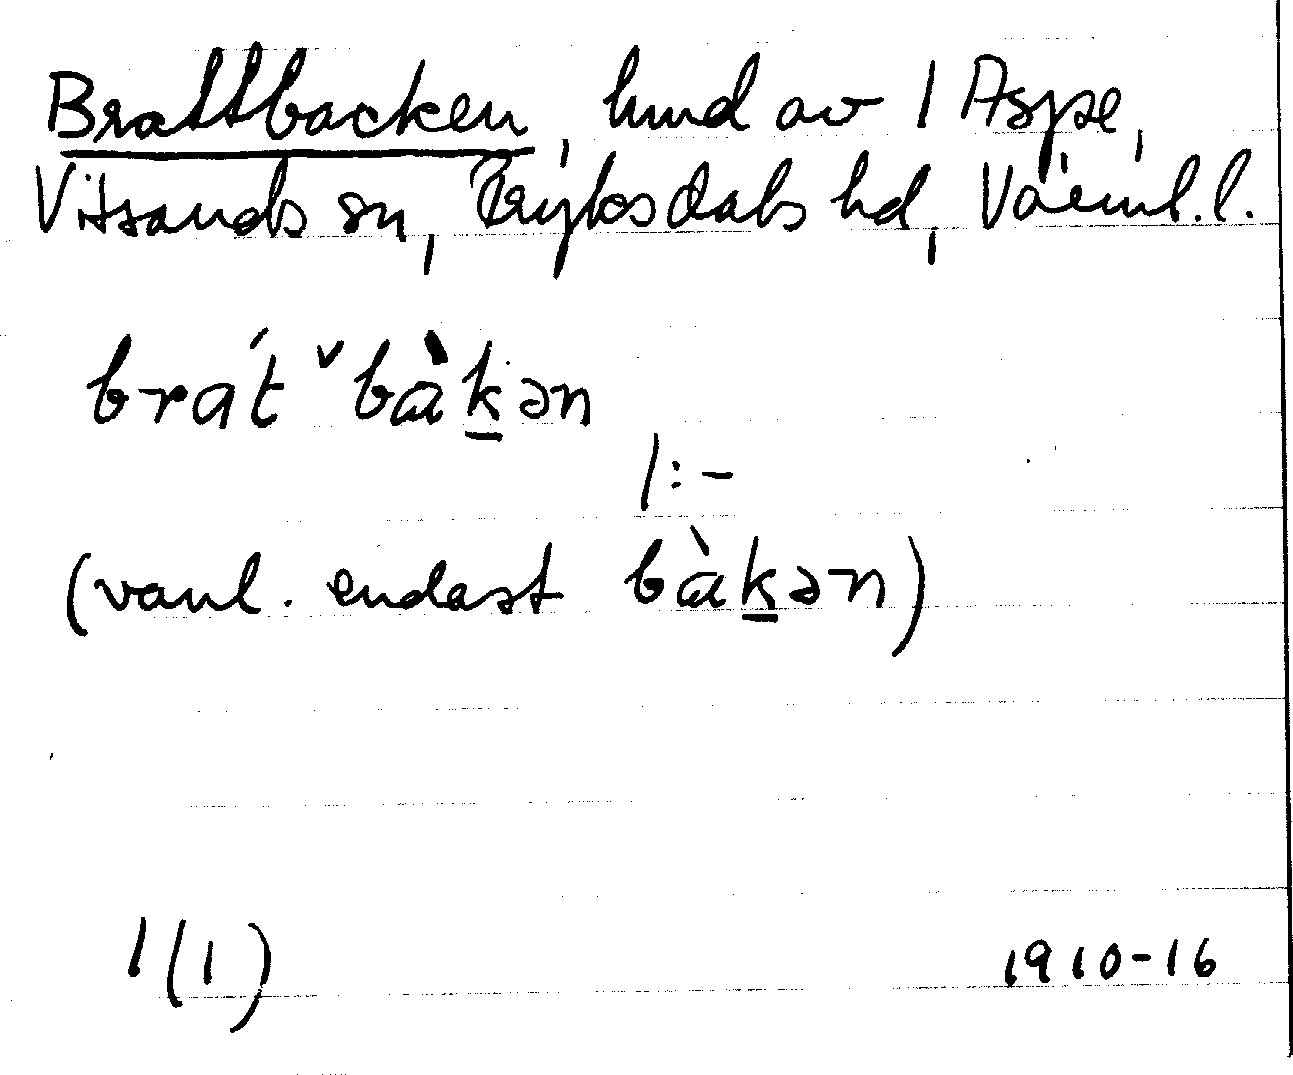 Brattbacken, hmd av 1 Aspe,
Vitsands sn, Fryksdals hd, Värml. l.
brát ˇbàk̠ən
/:-
(vanl. endast bàk̠ən)
1(1) 1910-16